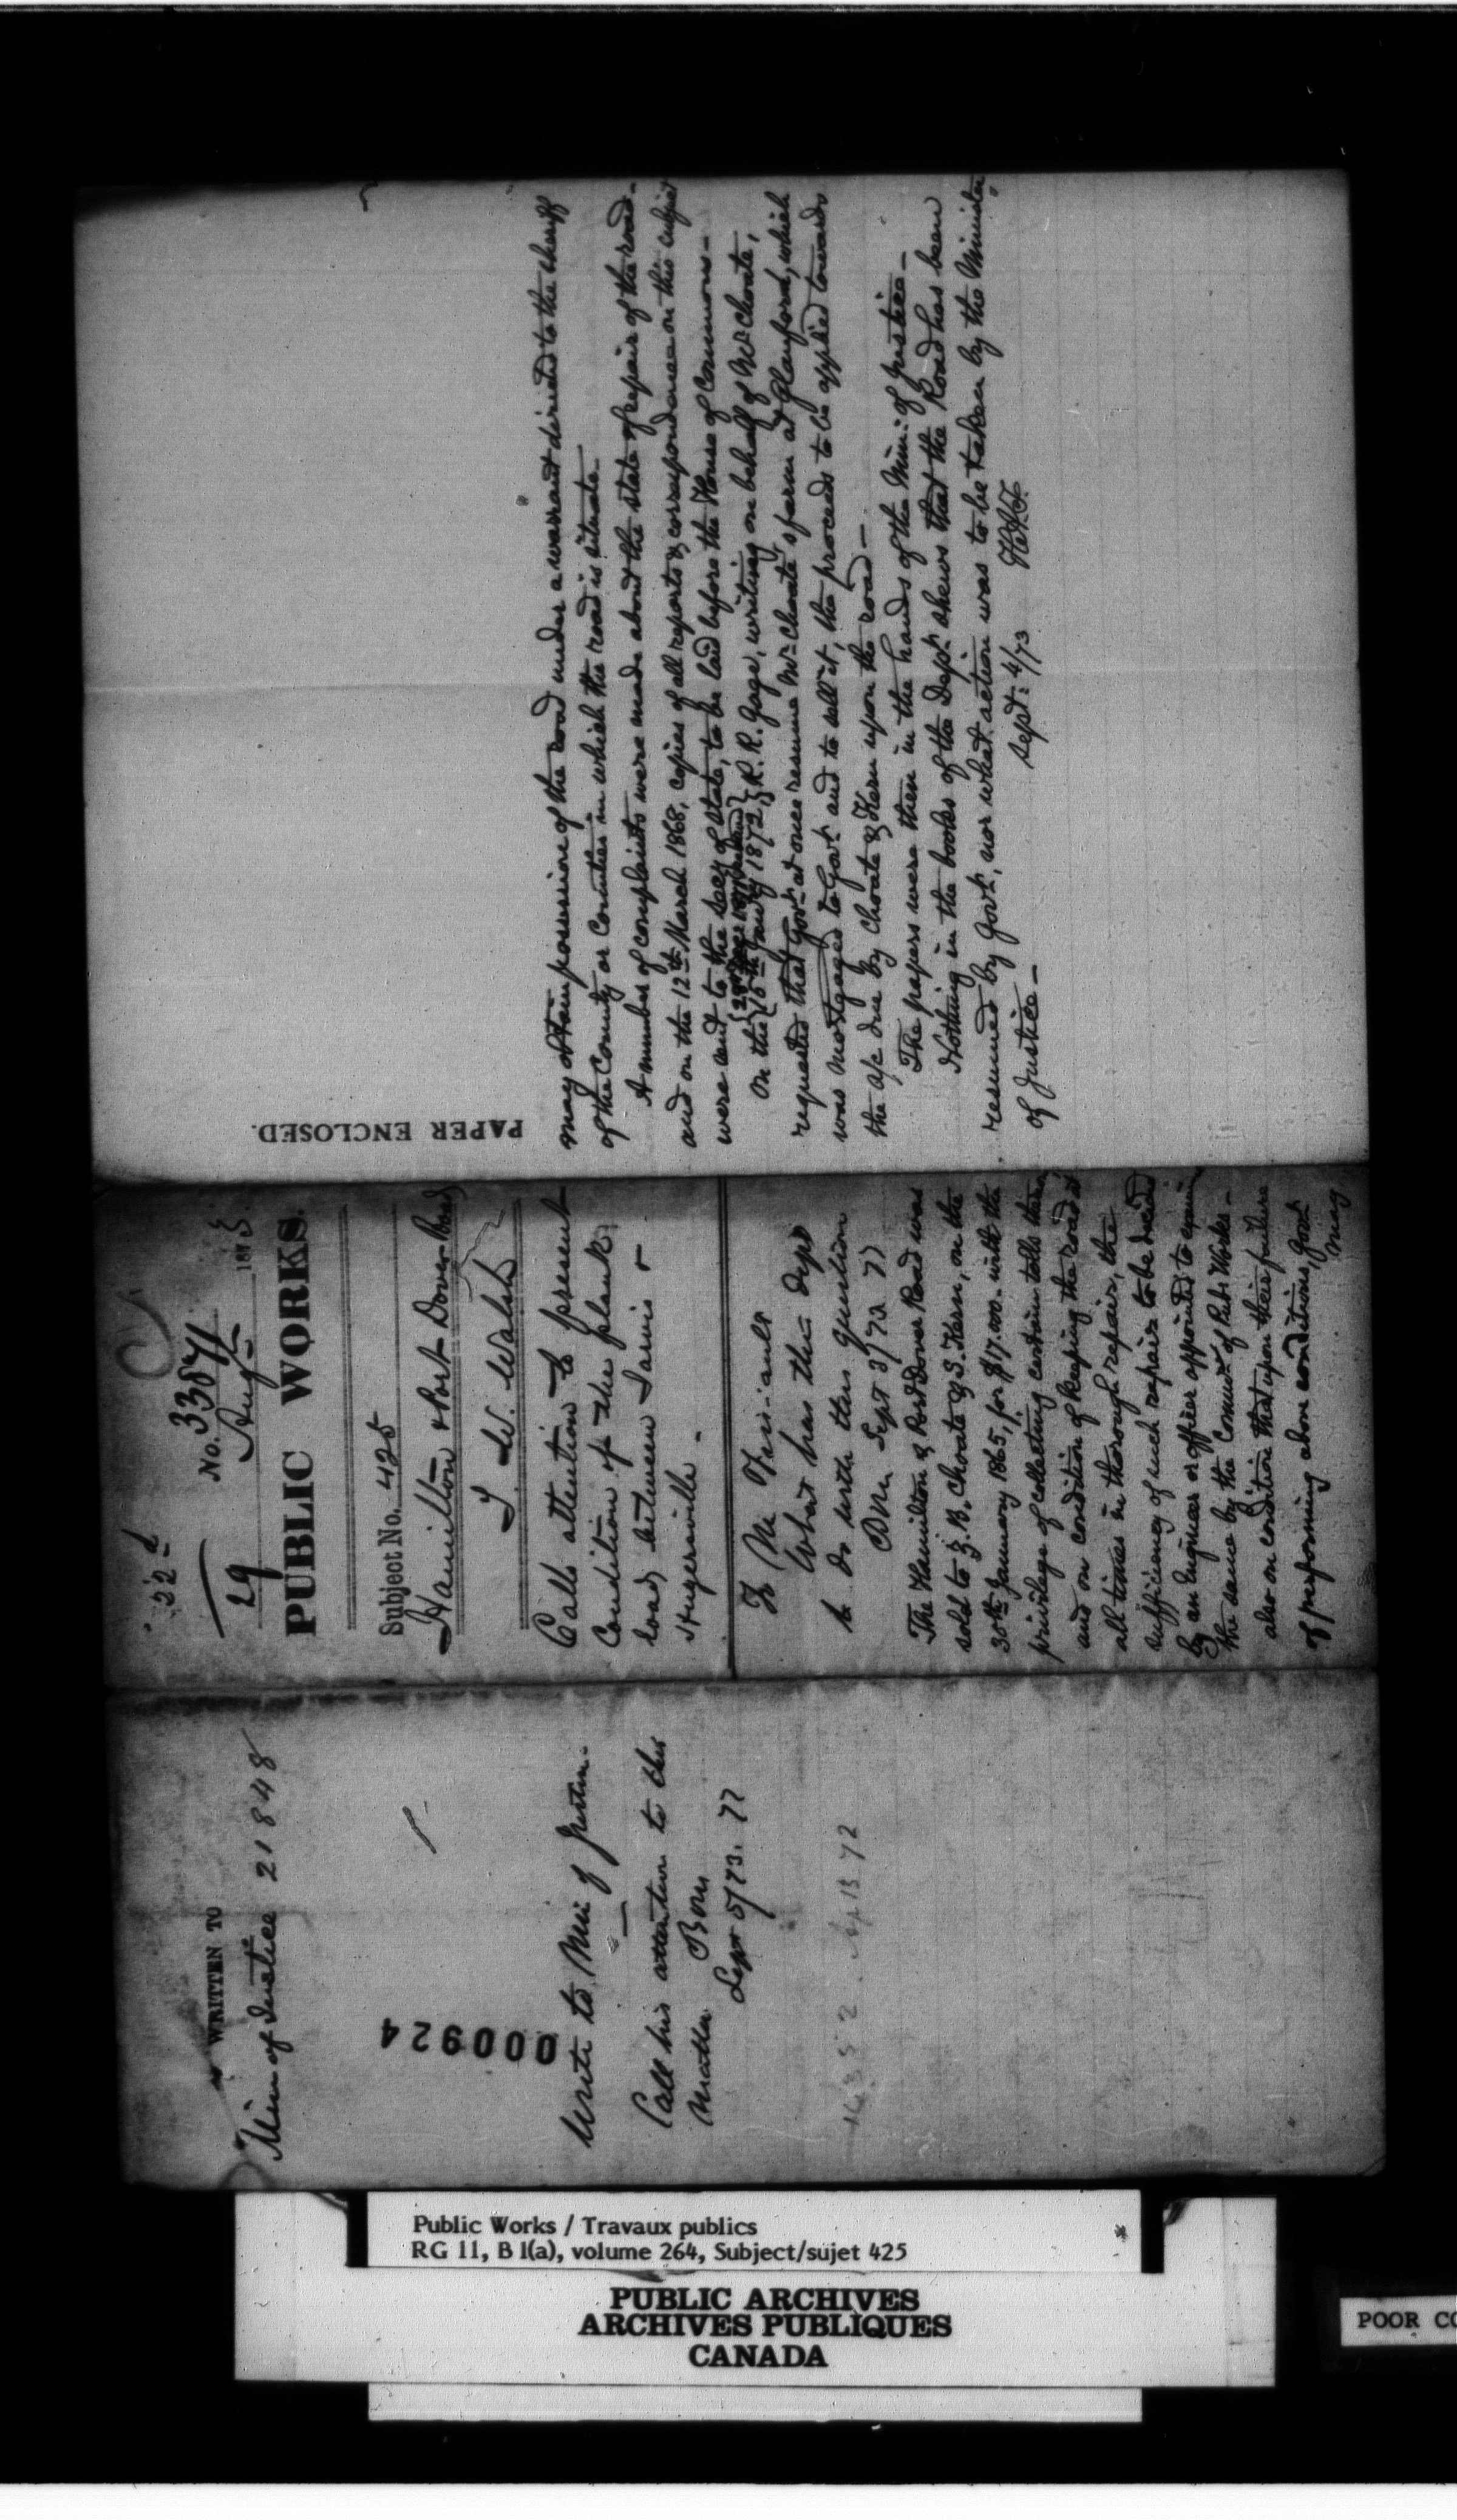 WRITTEN TO
Min of Justice 21848
000924
Write to Min of Justice
Call his attention to this
matter
Sept 5/73. 77
Ap 13 72
22d
No. 33871
29 Augt 1873.
PUBLIC WORKS.
Subject No. 425
Hamilton & Port Dover Road
L. W. Walsh
Calls attention to present
Condition of the plank
road between Jarvis &
Hagersville -
To Mr
What has the Dept
to do with this question
Sept 3/73 77
The Hamilton & Port Dover Road was
sold to J. B. Choate & S. Kern, on the
30th January 1865, for $17.000 - with the
privilege of collecting certain tolls thereon
and on condition of keeping the road at
all times in thorough repair, the
sufficiency of such repair to be decided
by an Engineer or officer appointed to examine
the same by the Commr of Pubc Works -
also on condition that upon their failure
of performing above conditions, Govt
may
PAPER ENCLOSED.
may obtain possession of the road under a warrant directed to the sheriff
of the County or Counties in which the road is situate -
A number of complaints were made about the state of repair of the road -
and on the 12th March 1868, copies of all reports & correspondence on this subject
were sent to the Secy of State, to be laid before the House of Commons -
On the 15th Jany 1872, R. R. Gage, writing on behalf of Mr Choate,
requested that Govt at once resume Mr Choate's farm at Glanford, which
was mortgaged to Govt and to sell it, the proceeds to be applied towards
the a/c due by Choate & Kern upon the road -
The papers were then in the hands of the Min: of Justice -
Nothing in the books of the Dept shews that the Road has been
resumed by Govt, nor what action was to be taken by the Minister
of Justice -
Sept: 4/73
Public Works / Travaux publics
RG 11, B 1(a), volume 264, Subject/sujet 425
PUBLIC ARCHIVES
ARCHIVES PUBLIQUES
CANADA
POOR CO